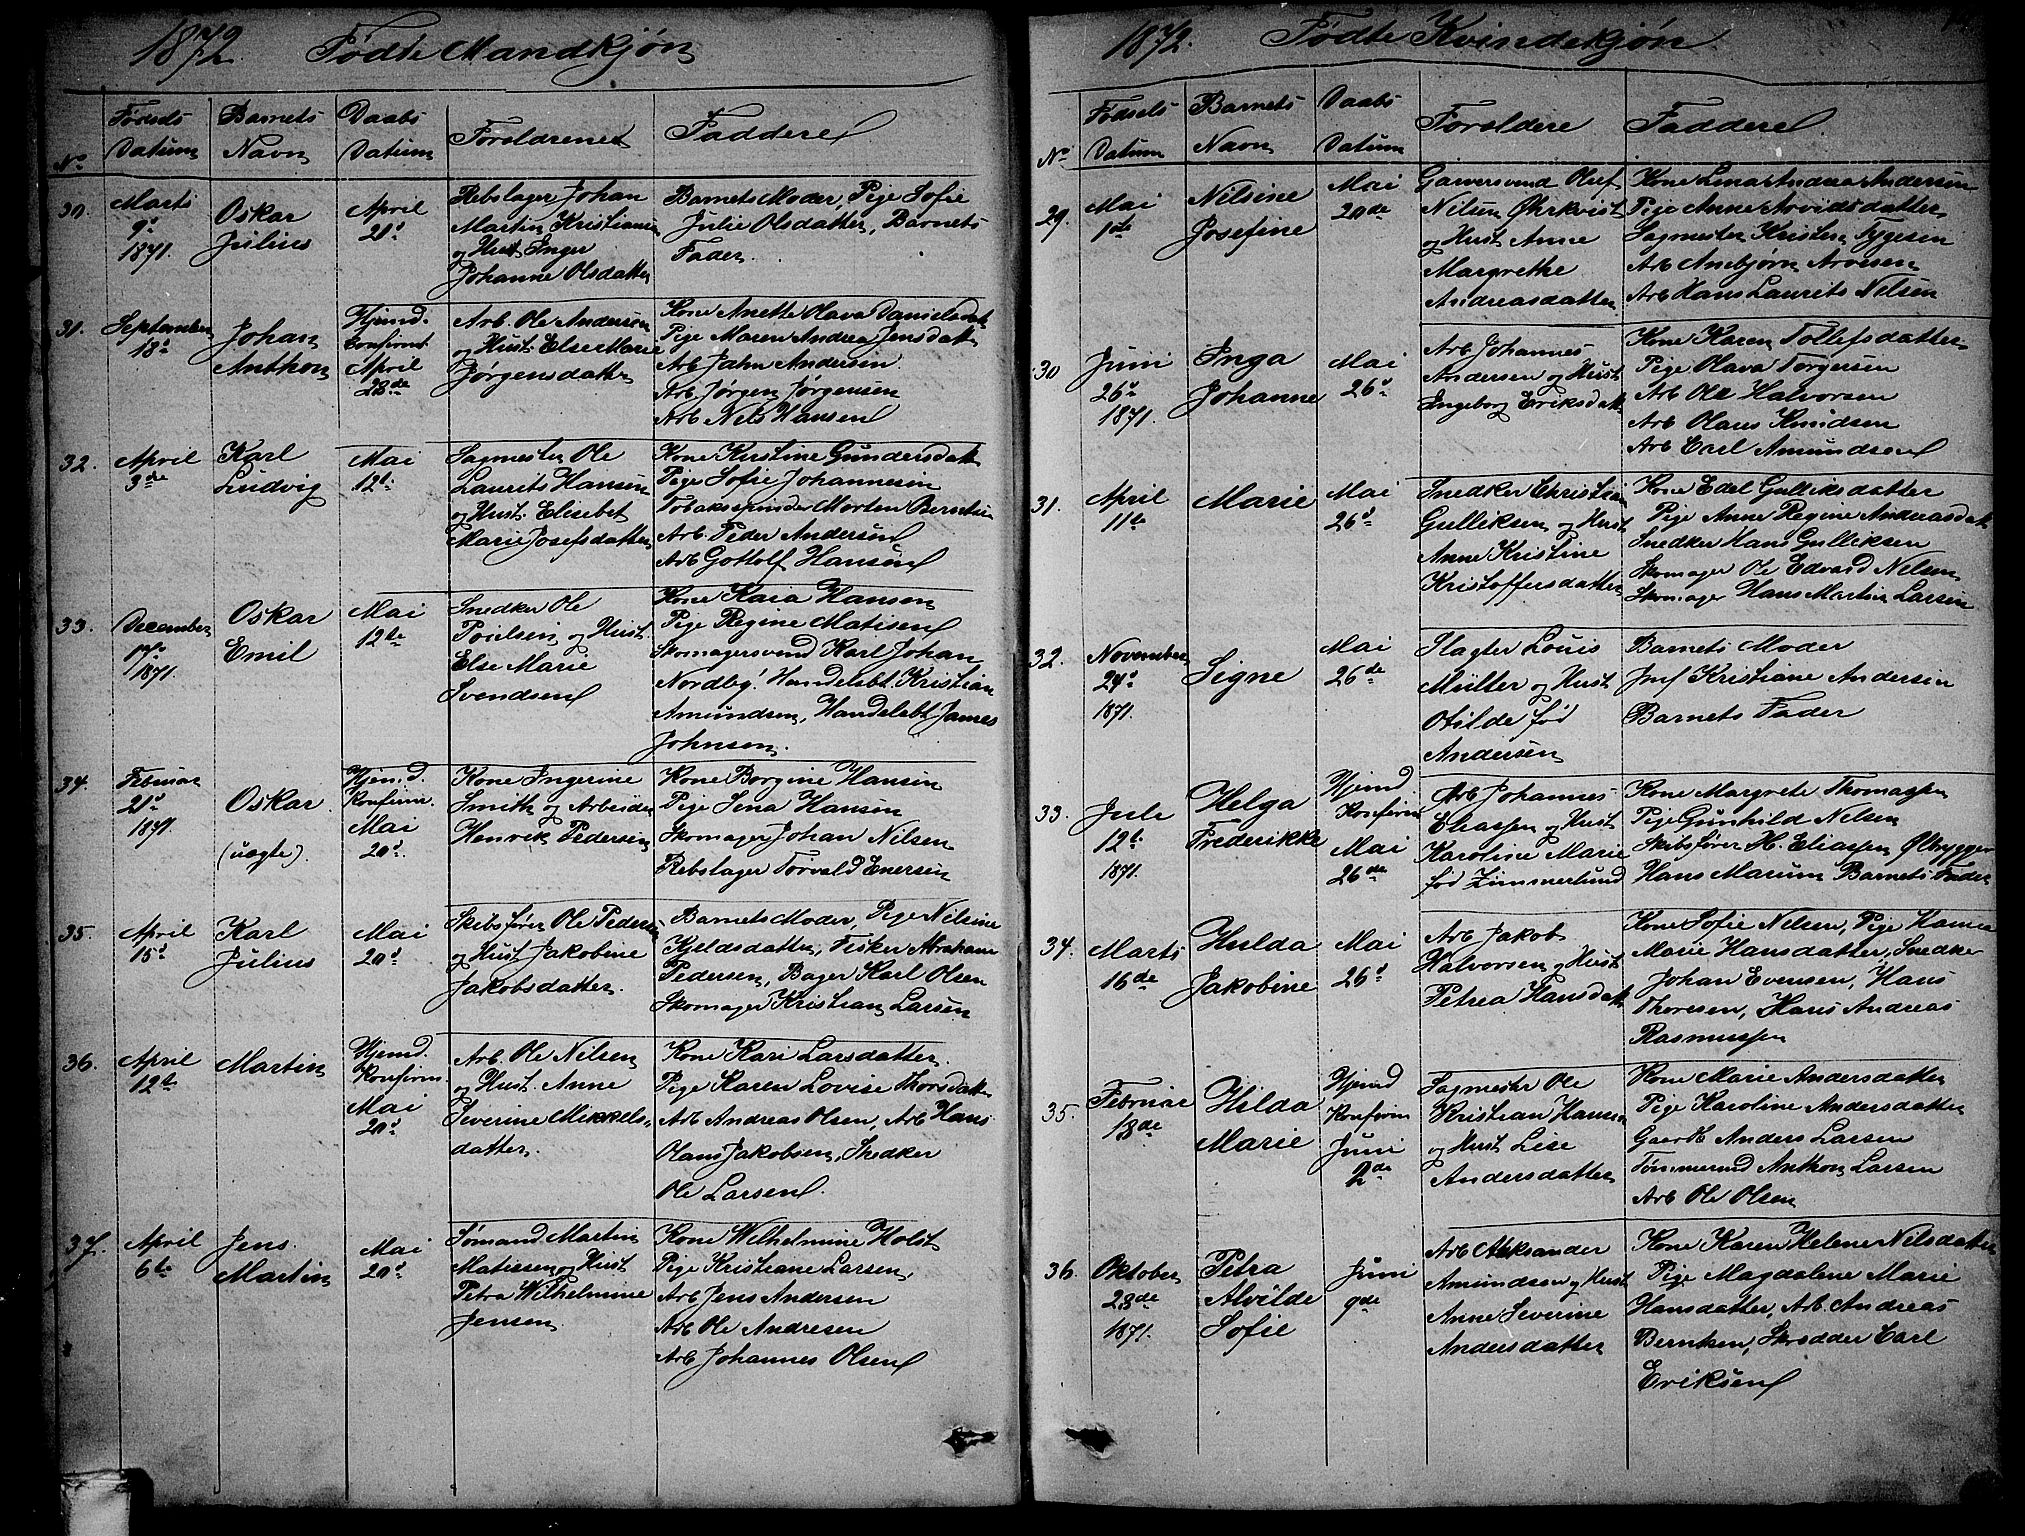 1872. Fødte Mandkjøn
No. Fødsels Datum Barnets Navn Daabs Datum Forældrene Faddere
30. Marts 9d 1871. Oskar Julius April 21d
Rebslager Johan
Martin Kristiansen
og Hust. Inger
Johanne Olsdatter
Barnets Moder, Pige Sofie
Julie Olsdatter, Barnets
Fader.
31. September 18d Johan Anthon Hjemd. Confirmt April 28de
Arb. Ole Andersen
og Hust. Else Marie
Jørgensdatter
Kone Anette Olava Danielsdat
Pige Maren Andrea Jensdatt
Arb. Jahn Andersen
Arb Jørgen Jørgensen
Arb Nels Hansen
32. April 3de Karl Ludvig Mai 12t
Sagmester Ole
Laurits Hansen
og Hust. Elisebet
Marie Josefsdatter
Kone Kristine Gundersdatt
Pige Sofie Johannesen
Tobaksspinder Morten Berntsen
Arb Peder Andersen
Arb Gottolf Hansen
33. December 17d 1871. Oskar Emil Mai 12te
Snedker Ole
Poulsen og Hust.
Else Marie
Svendsen
Kone Kaia Hansen
Pige Regine Matisen
Skomagersvend Karl Johan
Nordby. Handelsbt. Kristian
Amundsen, Handelsbt James
Johnsen.
34. Februar 21d 1871. Oskar (uægte). Hjemd. Konfirm. Mai 20d.
Kone Ingerine
Smith og Arbeider
Henrik Pedersen
Kone Borgine Hansen
Pige Jena Hansen
Skomager Johan Nilsen
Rebslager Torvald Enersen
35. April 15d Karl Julius Mai 20d
Skibsfører Ole Pedersen
og Hust Jakobine
Jakobsdatter.
Barnets Moder, Pige Nilsine
Kjeldsdatter, Fisker Abraham
Pedersen, Bager Karl Olsen
Skomager Kristian Larsen
36. April 12te Martin Hjemd. Konfirm. Mai 20d
Arb. Ole Nilsen
og Hust. Anne
Severine Mikkels-
datter.
Kone Kari Larsdatter.
Pige Karen Lovise Thorsdatt
Arb Andreas Olsen, Arb Hans
Olaus Jakobsen, Snedker
Ole Larsen.
37. April 6te Jens Martin Mai 20d
Sømand Martin
Matisen og Hust
Petra Wilhelmine
Jensen.
Kone Wilhelmine Holst
Pige Kristiane Larsen,
Arb Jens Andersen
Arb Ole Andresen
Arb Johannes Olsen
1872. Fødte Kvindekjøn.
No. Fødsels Datum Barnets Navn Daabs Datum Forældere Faddere
29. Mai 1ste Nilsine Josefine Mai 20de
Garversvend Oluf
Nilsen Øhrkvist
og Hust Anne
Margrethe
Andreasdatter
Kone Lina Andrea Andersen
Pige Anne Arvidsdatter
Sagmester Kristen Tygesen
Arb Anebjørn Arvesen
Arb Hans Laurits Nilsen
30 Juni 26d 1871. Inga Johanne Mai 26d
Arb Johannes
Andersen og Hust
Ingeborg Eriksdatt
Kone Karen Tollefsdatter
Pige Olava Torgersen
Arb Ole Halvorsen
Arb Olaus Knudsen
Arb Carl Amundsen
31. April 11te Marie Mai 26d
Snedker Christian
Gulliksen og Hust
Anne Kristine
Kristoffersdatter
Kone Edel Gulliksdatter
Pige Anne Regine Andreasdat
Snedker Hans Gulliksen
Skomager Ole Edvard Nelsen
Skomager Hans Martin Larsen
32. November 24d 1871. Signe Mai 26de
Slagter Louis
Müller og Hust
Otilde fød
Andersen
Barnets Moder
Jmf Kristiane Andersen
Barnets Fader
33. Juli 12t. 1871. Helga Frederikke Hjemd. Konfirm Mai 26de
Arb Johannes
Eliassen og Hust
Karoline Marie
fød Zimmerlund
Kone Margrete Thomassen
Pige Gunhild Nelsen
Skibsfører H. Eliassen Ølbrygger
Hans Marum Barnets Fader
34. Marts 16de Hulda Jakobine Mai 26d
Arb Jakob
Halvorsen og Hust
Petrea Hansdatt
Kone Sofie Nilsen, Pige Hanna
Marie Hansdatter, Snedker
Johan Evensen, Hans
Thoresen, Hans Andreas
Rasmussen
35. Februar 18de Hilda Marie Hjemd Konfirm Juni 2de
Sagmestr Ole
Kristian Hansen
og Hust Lese
Andersdatter
Kone Marie Andersdatter
Pige Karoline Andersdatter
Anders Larsen
Tømmermd Anthon Larsen
Arb Ole Olsen
36. Oktober 28de 1871. Petra Alvilde Sofie Juni 9de
Arb Aleksander
Amundsen og Hust
Anne Severine
Andersdatter
Kone Karen Helene Nilsdatter
Pige Magdalene Marie
Hansdatter, Arb. Andreas
Berntsen, Skrædder Carl
Eriksen